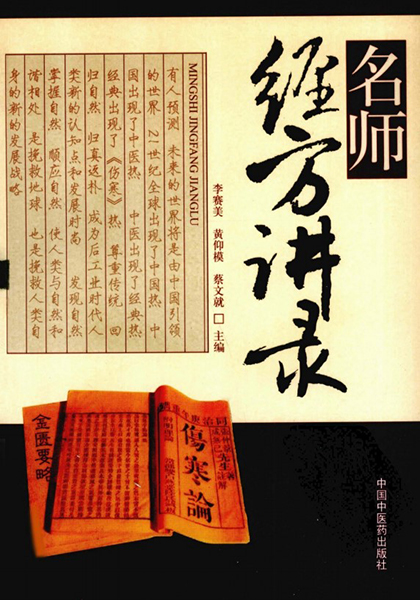 名师
经方讲录
李赛美 黄仰模 蔡文就 □ 主编
MINGSHI JINGFANG JIANGLU
有人预测 未来的世界将是由中国引领
的世界 21世纪全球出现了中国热 中
国出现了中医热 中医出现了经典热
经典出现了《伤寒》热 尊重传统 回
归自然 归真返朴 成为后工业时代人
类新的认知点和发展时尚 发现自然
掌握自然 顺应自然 使人类与自然和
谐相处 是挽救地球 也是挽救人类自
身的新的发展战略
傷寒論
金匱要略
中国中医药出版社